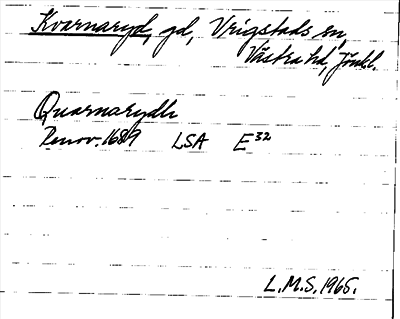 Kvarnaryd, gd, Vrigstads sn,
Västra hd, Jönkl.
Quarnarydh
Renov. 1689 LSA E32
L.M.S. 1965.